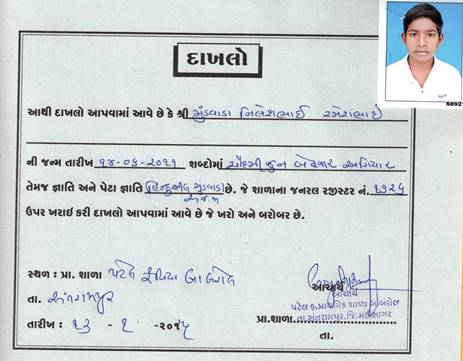 5892
દાખલો
આથી દાખલો આપવામાં આવે છે કે શ્રી મુંડવાડા નિલેશભાઈ રમેશભાઈ
ની જન્મ તારીખ ૧૪-૦૬-૨૦૧૧ શબ્દોમાં ચૌદમી જુન બેહજાર અગિયાર
તેમજ જ્ઞાતિ અને પેટા જ્ઞાતિ હિન્દુ મુંડવાડા છે. જે શાળાના જનરલ રજીસ્ટર નં ૧૭૨૬
અ.જ.જા
ઉપર ખરાઇ કરી દાખલો આપવામાં આવે છે જે ખરો અને બરોબર છે.
સ્થળ : પ્રા. શાળા પટેલ ફળિયા બાબરોલ
તા. સંતરામપુર
તારીખ : ૧૩ - ૧ -૨૦૨૫
આચાર્ય
આચાર્ય
પટેલ ફ.પ્રાથમિક શાળા બાબરોલ
પ્રા.શાળા તા.સંતરામપુર.જિ.મહીસાગર
તા.